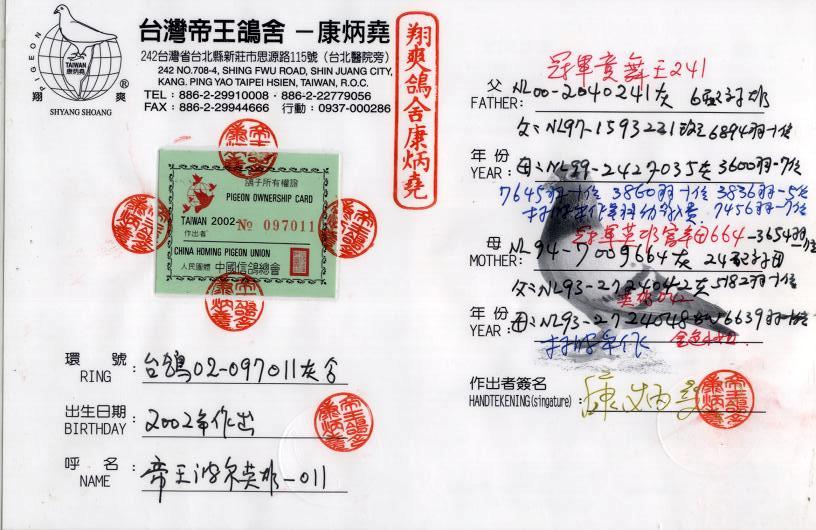 台灣帝王鴿舍 －康炳堯
242台灣省台北縣新莊市思源路115號（台北醫院旁）
242 NO.708-4, SHING FWU ROAD, SHIN JUANG CITY,
KANG. PING YAO TAIPEI HSIEN, TAIWAN, R.O.C.
TEL：886-2-29910008・886-2-22779056
FAX：886-2-29944666 行動：0937-000286
PIGEON
TAIWAN
康炳堯
翔 爽 ®
SHYANG SHOANG
翔爽鴿舍康炳堯
鴿子所有權證
PIGEON OWNERSHIP CARD
TAIWAN 2002 № 097011
作出者
CHINA HOMING PIGEON UNION
人民團體 中國信鴿總會
環 號
RING : 台鴿02-097011灰
出生日期
BIRTHDAY : 2002年作出
呼 名
NAME : 帝王波尔英雄-011
241
父
FATHER: NL00-2040241灰
父: NL97-1593221 6894羽-1位
年份
YEAR: 母: NL99-2427035灰 3600羽-7位
7645羽-1位 3860羽-1位 3836羽-5位
7456羽-7位
冠軍英雄 664 -3654羽
母
MOTHER: NL94-7009664灰
父: NL93-2724042灰 5182羽-1位
年份
YEAR: 母: NL93-2724048灰 6639羽-1位
作出者簽名
HANDTEKENING(singature): 康炳堯